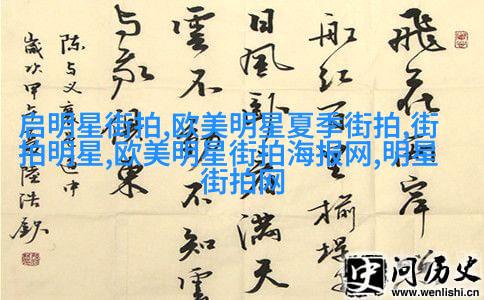 飛花两岸
船红百里榆堤
日風卧看满天
雲不動不知雲
与我俱東
陈与义襄邑道中
歲次甲午陸浩欽
启明星街拍,欧美明星夏季街拍,街
拍明星,欧美明星街拍海报网,明星
街拍网
问历史
www.wenlishi.cn